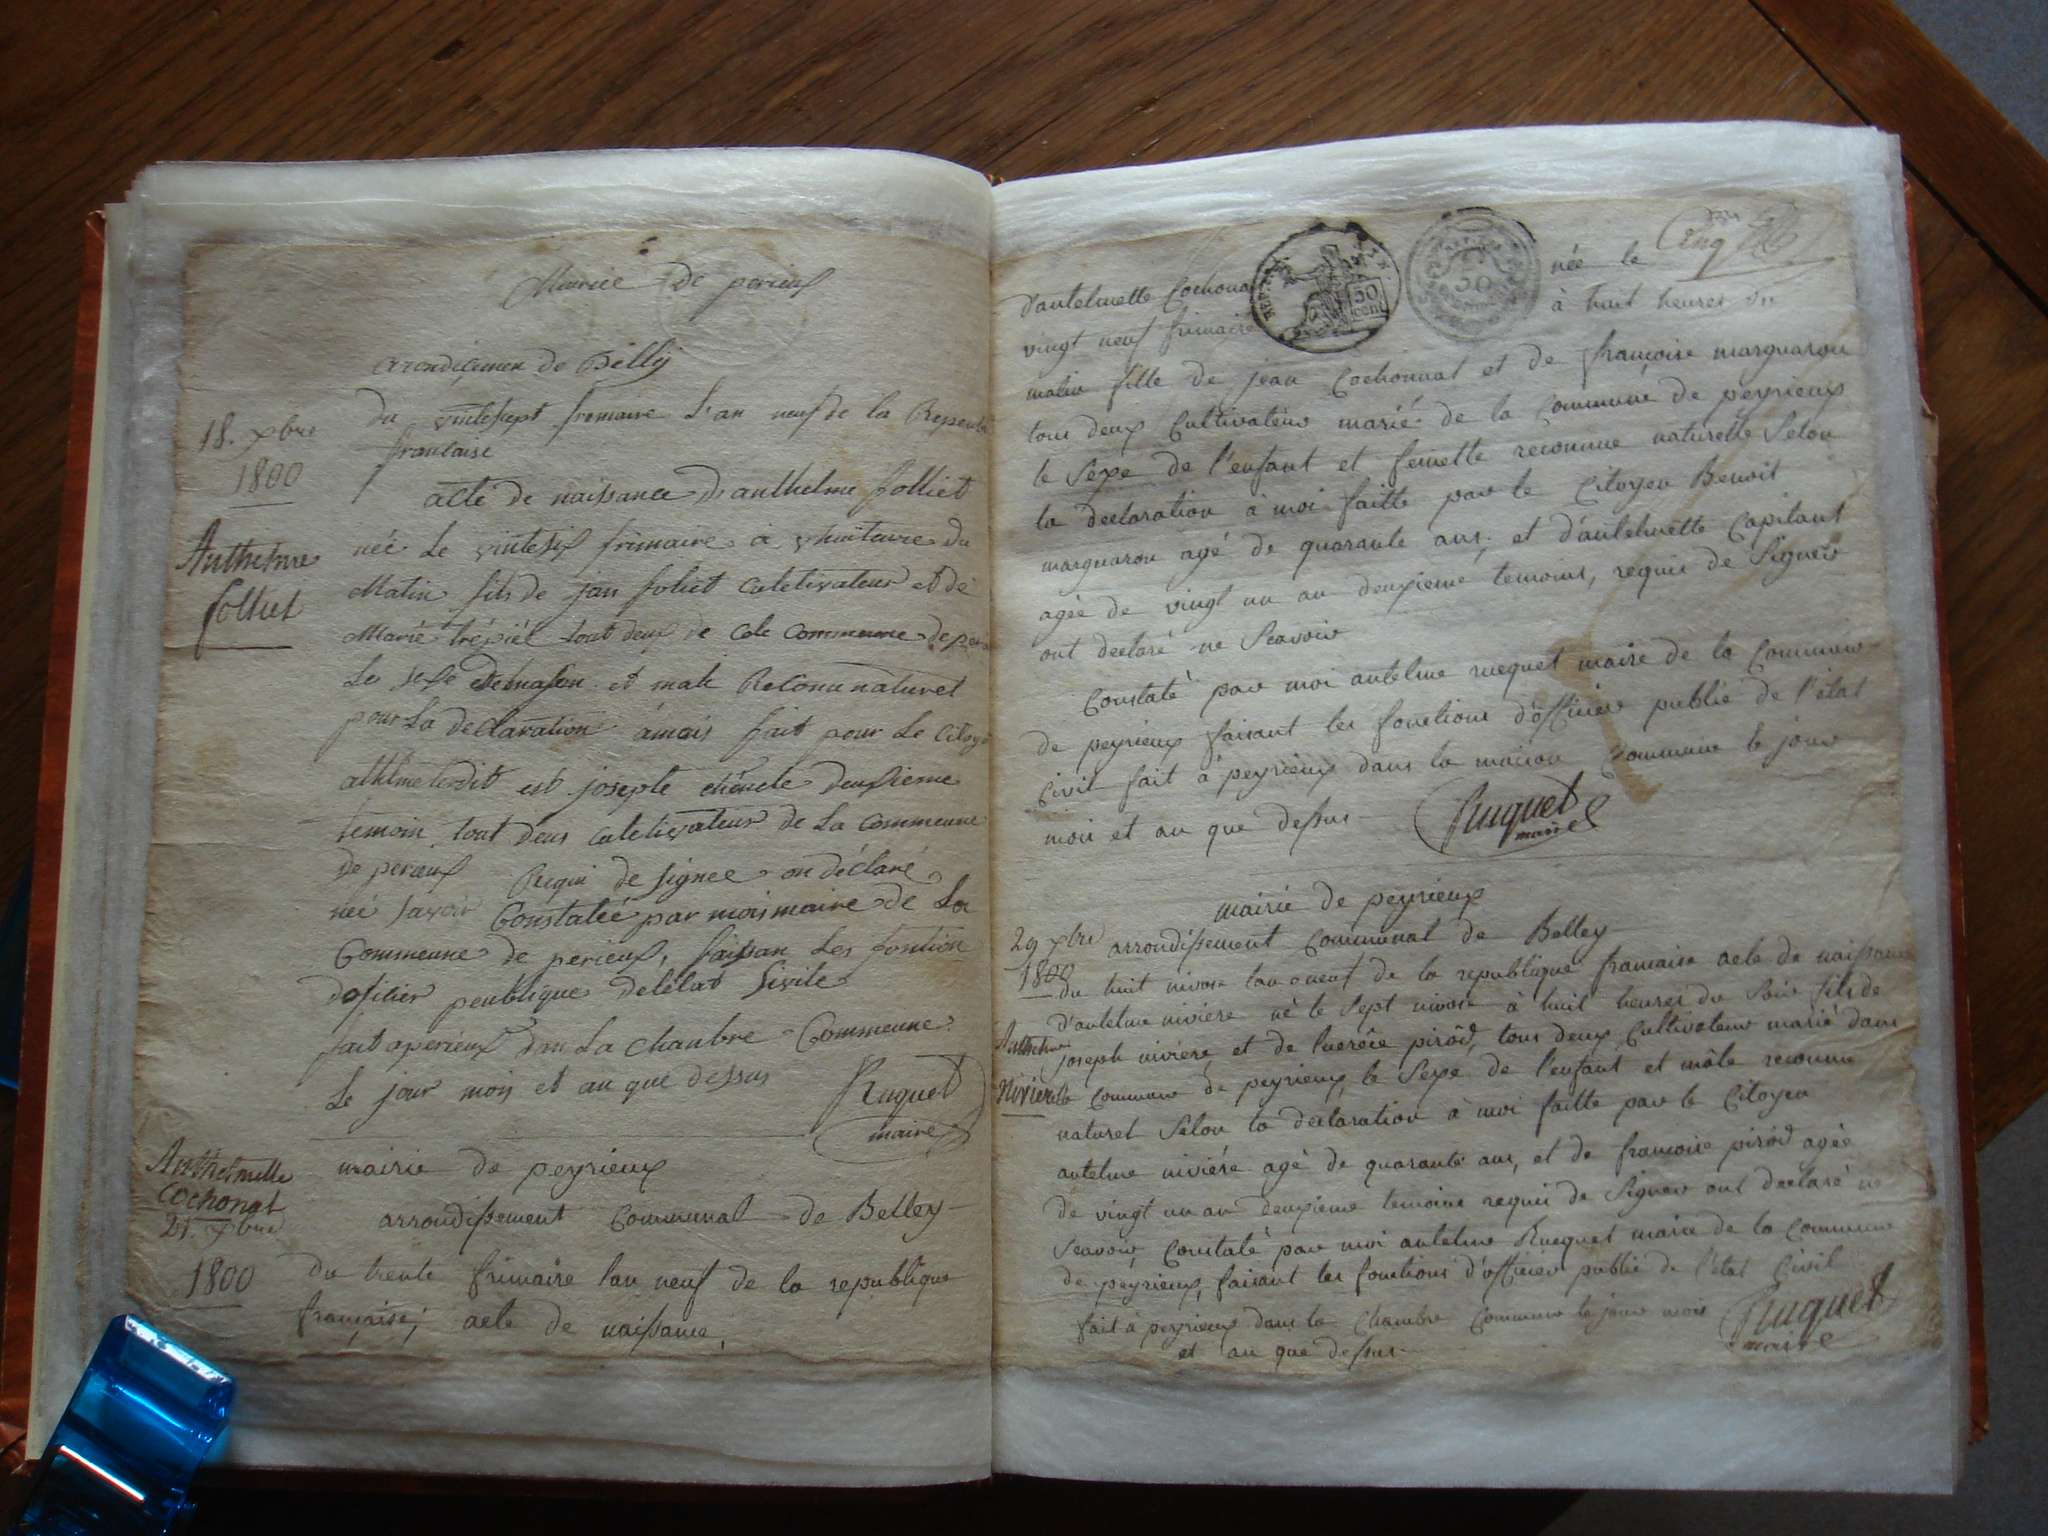 Mairiee de perieux
arondiçemen de Belly
18. xbre
1800
du vintesept frimaire l'an neuf de la Repeubl
francaise
acte de naissance d'anthelme folliet
Anthelme
folliet
née Le vintesix frimaire à
Matin fils de jan foliet culetivateur et de
Marie trépiét tout deux de cele commeune de
Le sexe et male Reconu naturel
pour La declaration à mois fait pour Le Citoy
est josepte deuxieme
temoin tout deus culetivateur de La commeune
de perieux Requi de signee on déclaré
neé savoir Constateé par mois maire de La
Commeune de perieux, faisan Les fontion
dofisier peublique delétat sivile
fait a perieux dan La chanbre Commeune
Le jour mois et an que dessus
Ruquet
maire
Anthelmette
Cochonat
21. xbre
1800
mairie de peyrieux
arrondissement Communal de Belley
du trente frimaire lan neuf de la republique
française; acte de naissance,
Cinq
d'antelmette Cochona née le
REP. FRA.
50
cent
50
vingt neuf frimaire à huit heures du
matin fille de jean Cochonnat et de francoise marguarou
tous deux Cultivateur marié de la Commune de peyrieux
le Sexe de l'enfant et femelle reconnue naturelle Selon
la declaration à moi faitte par le Citoyen Benoit
marguarou agé de quarante ans; et d'antelmette Capitant
agée de vingt un an deuxieme temoins, requis de Signer
ont declaré ne Scavoir
Constaté par moi antelme rucquet maire de la Commune
de peyrieux faisant les fonctions d'officier public de l'état
Civil fait à peyrieux dans la maison Commune le jour
mois et an que dessus
Ruquet
maire
mairié de peyrieux
29 xbre
1800
arrondissement Communal de Belley
du huit nivose lan neuf de la republique francaise acte de naissance
d'antelme niviére né le Sept nivose à huit heures du Soir fils de
Anthelme
Nivier
joseph niviére et de lucréce piròd, tous deux Cultivateur marié dans
la Commune de peyrieux, le Sexe de l'enfant et mâle reconnu
naturel Selon la declaration à moi faitte par le Citoyen
antelme niviére agé de quarante ans, et de francoise piròd agée
de vingt un an deuxieme temoins requis de Signer ont declaré ne
Scavoir, Constaté par moi antelme Rucquet maire de la Commune
de peyrieux, faisant les fonctions d'officier public de l'état Civil
fait à peyrieux dans la Chambre Commune le jour mois
et an que dessus
Ruquet
maire